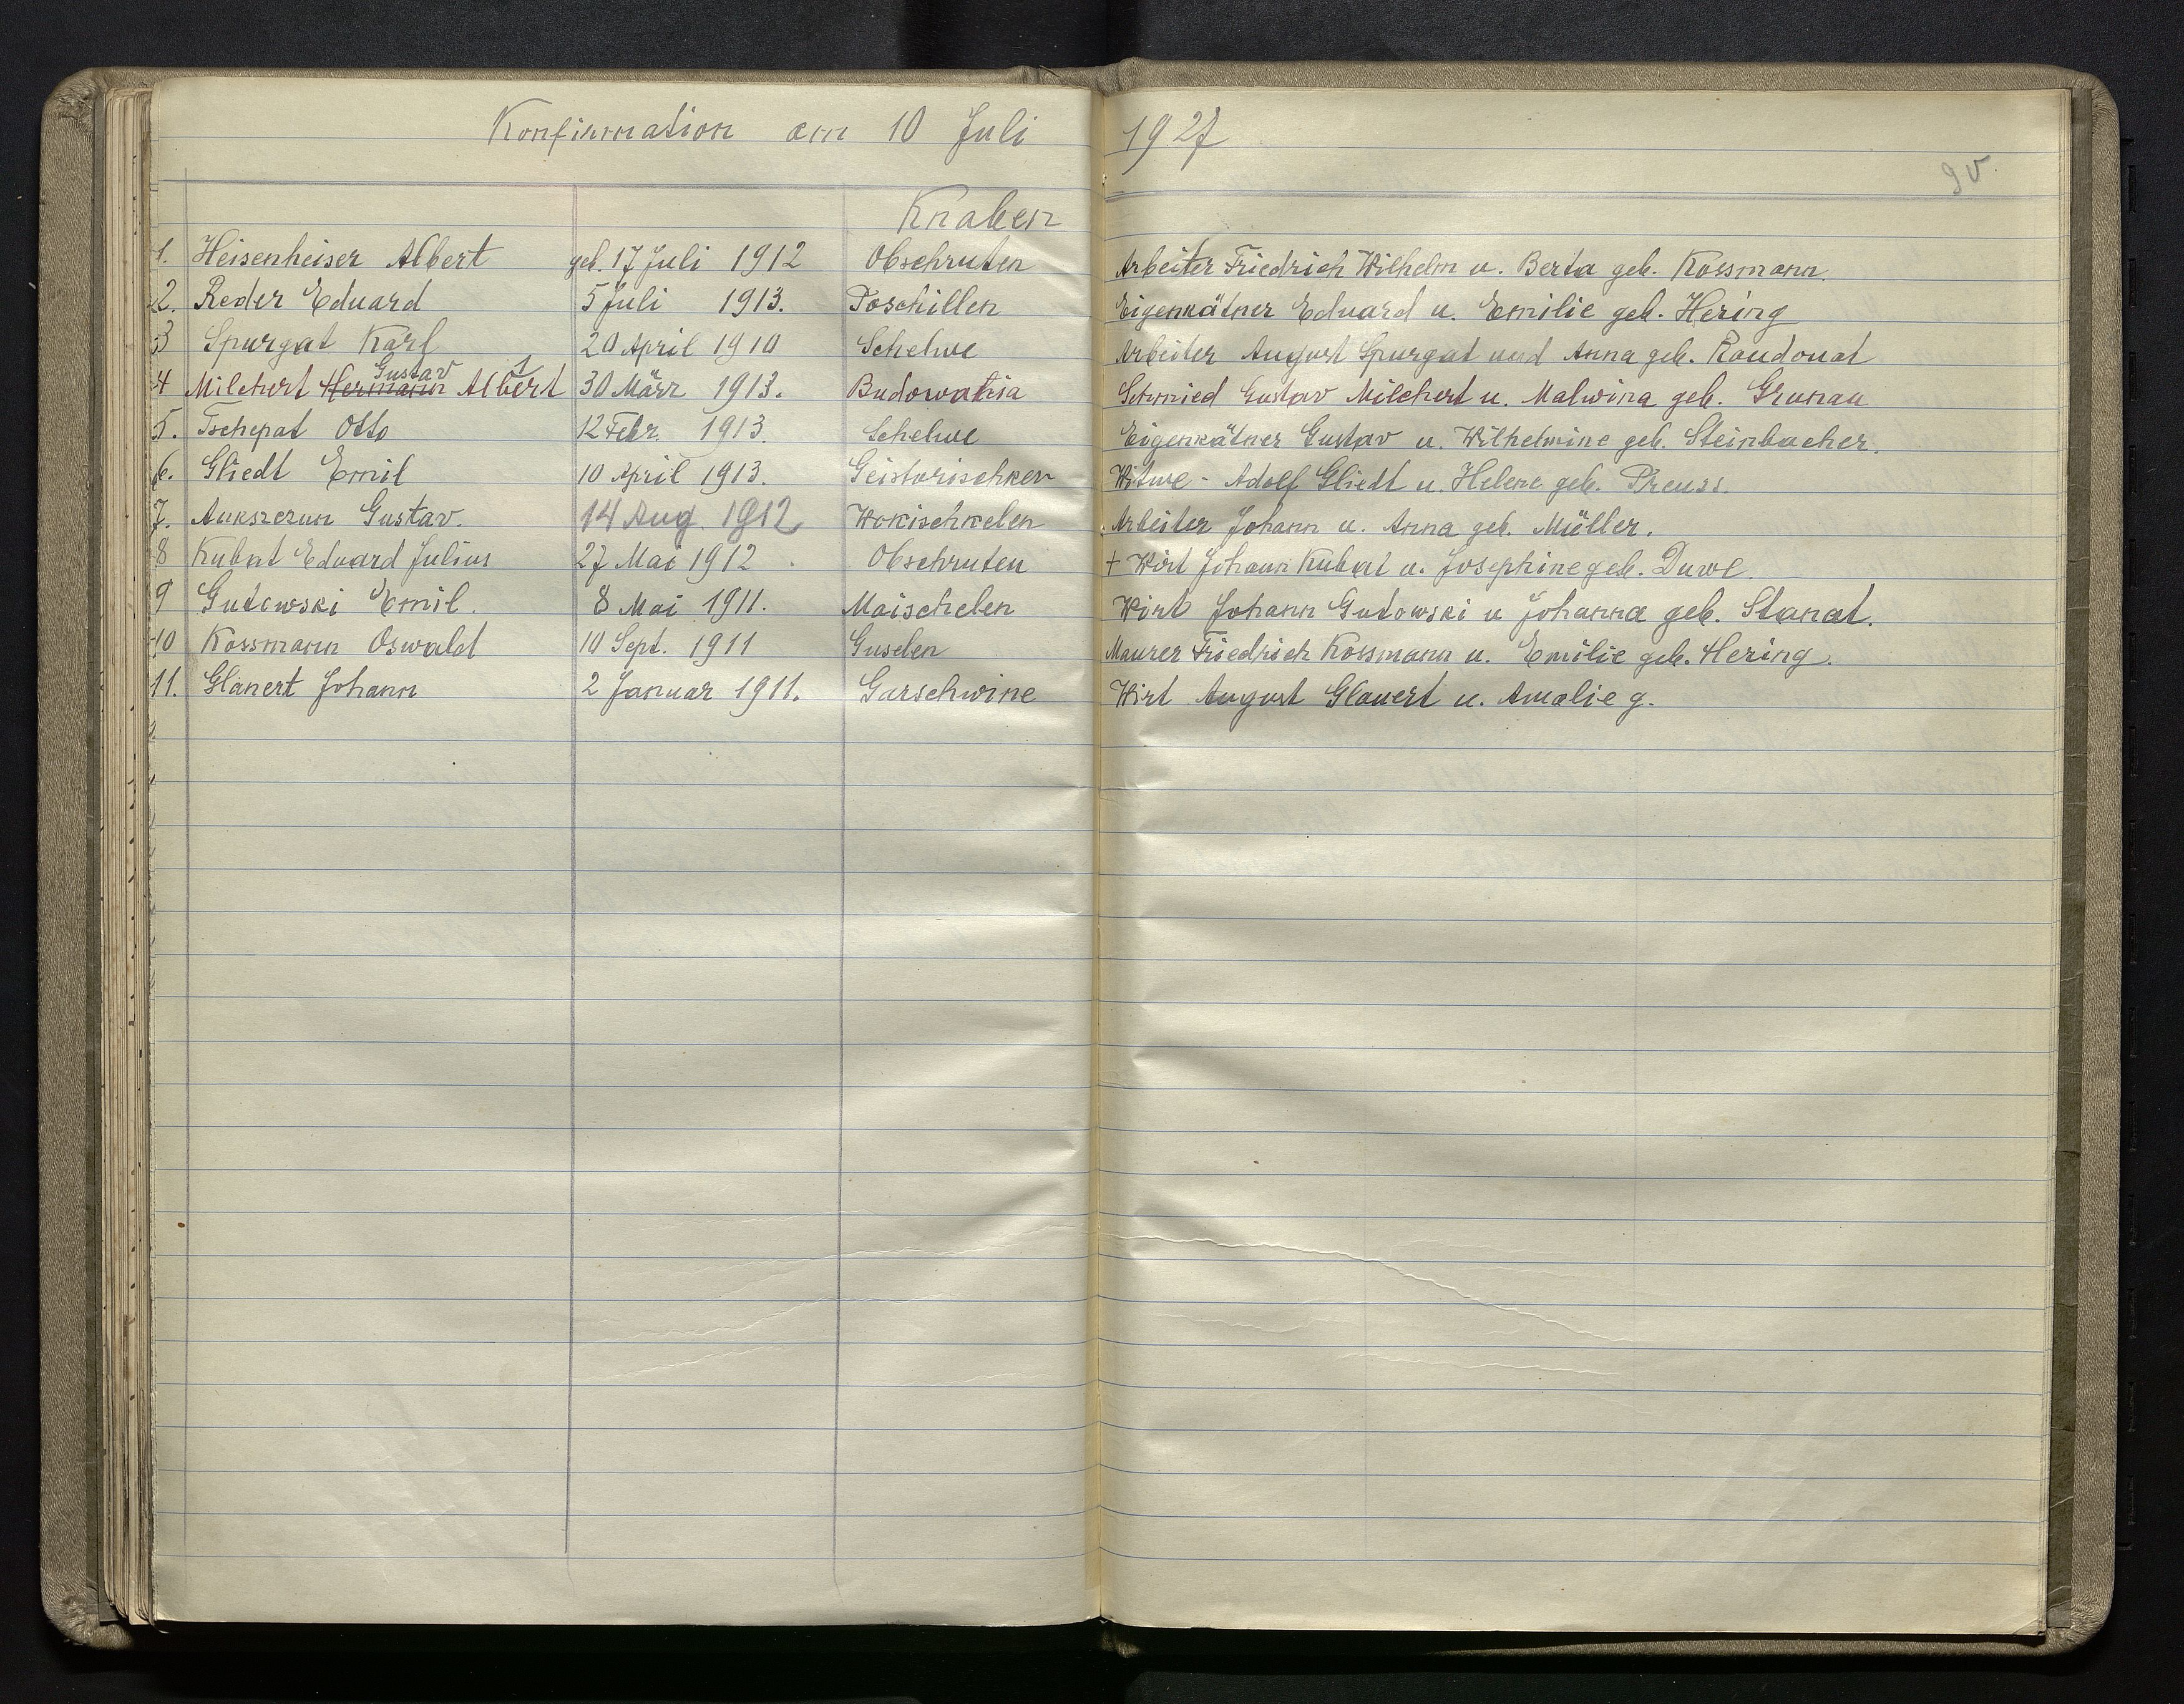 Konfirmation am 10 Juli 1927
Knaben
1. Heisenheiser Albert geb. 17 Juli 1912 Obschruten Arbeiter Friedrich Wilhelm u. Berta geb. Kossmann.
2. Reder Eduard 5 Juli 1913. Poschillen Eigenkätner Eduard u. Emilie geb. Hering
3 Spurgat Karl 20 April 1910 Schelwe Arbeiter August Spurgat und Anna geb. Raudonat
Gustav
4 Milchert Hermann Albert 30 März 1913. Budowatia Schmied Gustav Milchert u. Malwina geb. Grunau
5. Tschepat Otto 12 Febr. 1913. Schelwe Eigenkätner Gustav u. Wilhelmine geb. Steinbacher.
6. Gliedt Emil 10 April 1913. Geistorischken Witwe - Adolf Gliedt u. Helene geb. Preuss.
7. Aukszerun Gustav. 14 Aug. 1912 Wokischkelen Arbeiter Johann u. Anna geb. Müller.
8 Kubat Eduard Julius 27 Mai 1912. Obschruten + Wirt Johann Kubat u. Josephine geb. Duwe.
9 Gutowski Emil. 8 Mai 1911. Maischelen Wirt Johann Gutowski u Johanna geb. Stanat.
10 Kossmann Oswald 10 Sept. 1911 Guselen Maurer Friedrich Kossmann u. Emilie geb. Hering.
11. Glanert Johann 2 Januar 1911. Garschwine Wirt August Glanert u. Amalie g.